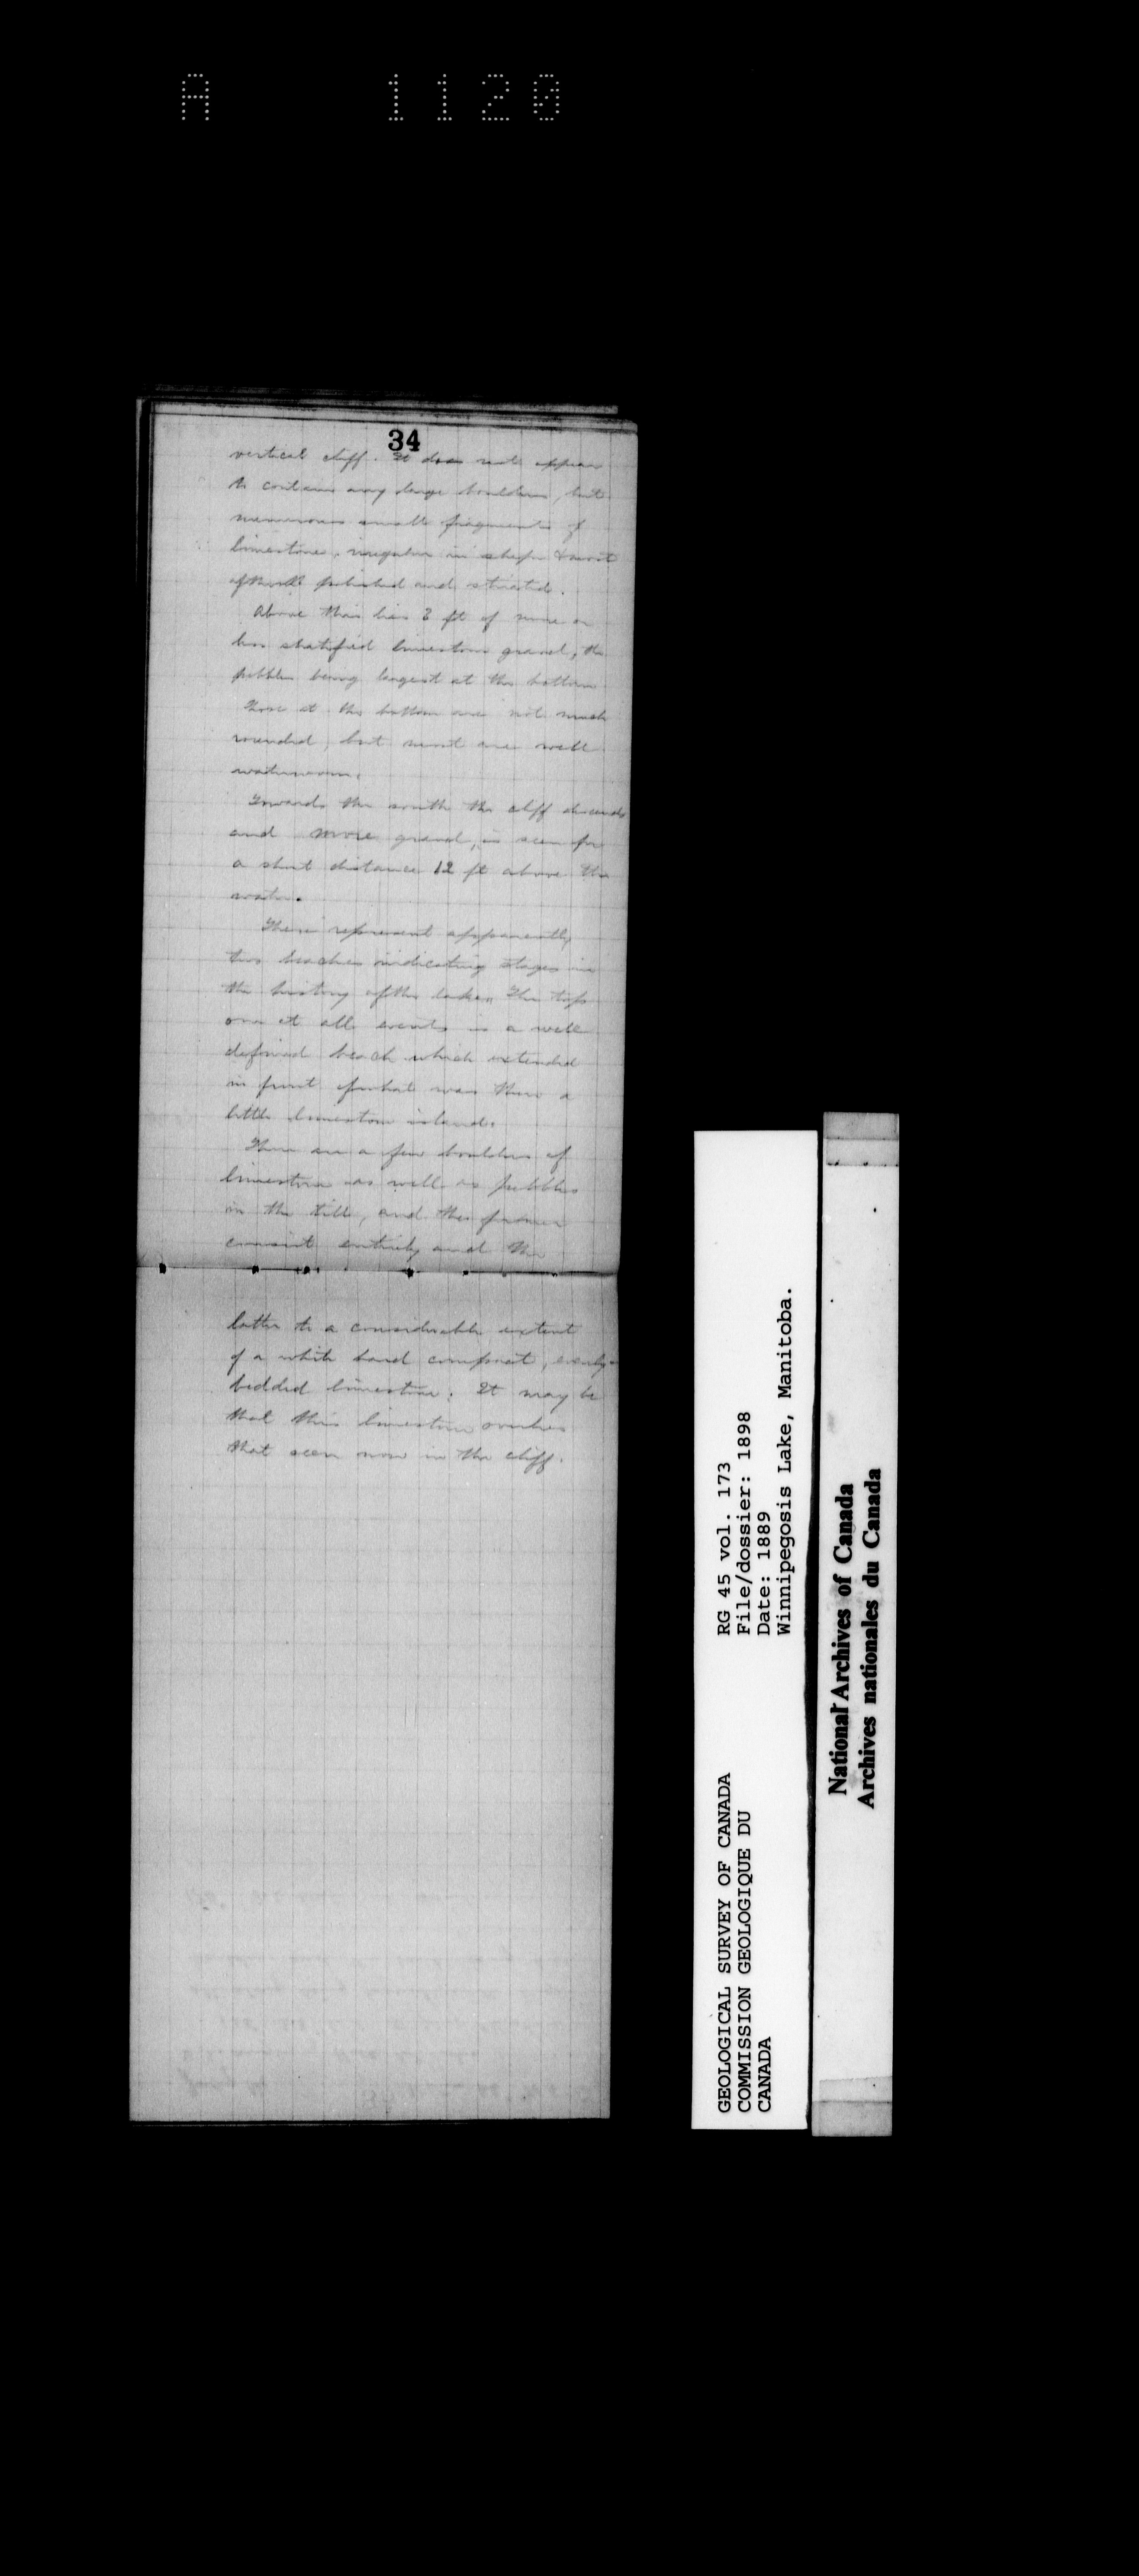 A 1120
34
vertical cliff. It does not appear
to contain any large boulders, but
numerous small fragments of
limestone, irregular in shape & most
of them polished and striated.
Above this lies 3 ft of more or
less stratified limestone gravel, the
pebbles being largest at the bottom
Those at the bottom are not much
rounded, but most are well
waterworn.
Towards the south the cliff descends
and more gravel, is seen for
a short distance 12 ft above the
water.
These represent apparently
two beaches indicating stages in
the history of the lake. The top
one at all events is a well
defined beach which extended
in front of what was then a
little limestone island.
There are a few boulders of
limestone as well as pebbles
in the till, and the former
consist entirely and the
latter to a considerable extent
of a white hard compact, evenly
bedded limestone. It may be
that this limestone overlies
that seen now in the cliff.
RG 45 vol. 173
File/dossier: 1898
Date: 1889
Winnipegosis Lake, Manitoba.
GEOLOGICAL SURVEY OF CANADA
COMMISSION GEOLOGIQUE DU
CANADA
National Archives of Canada
Archives nationales du Canada